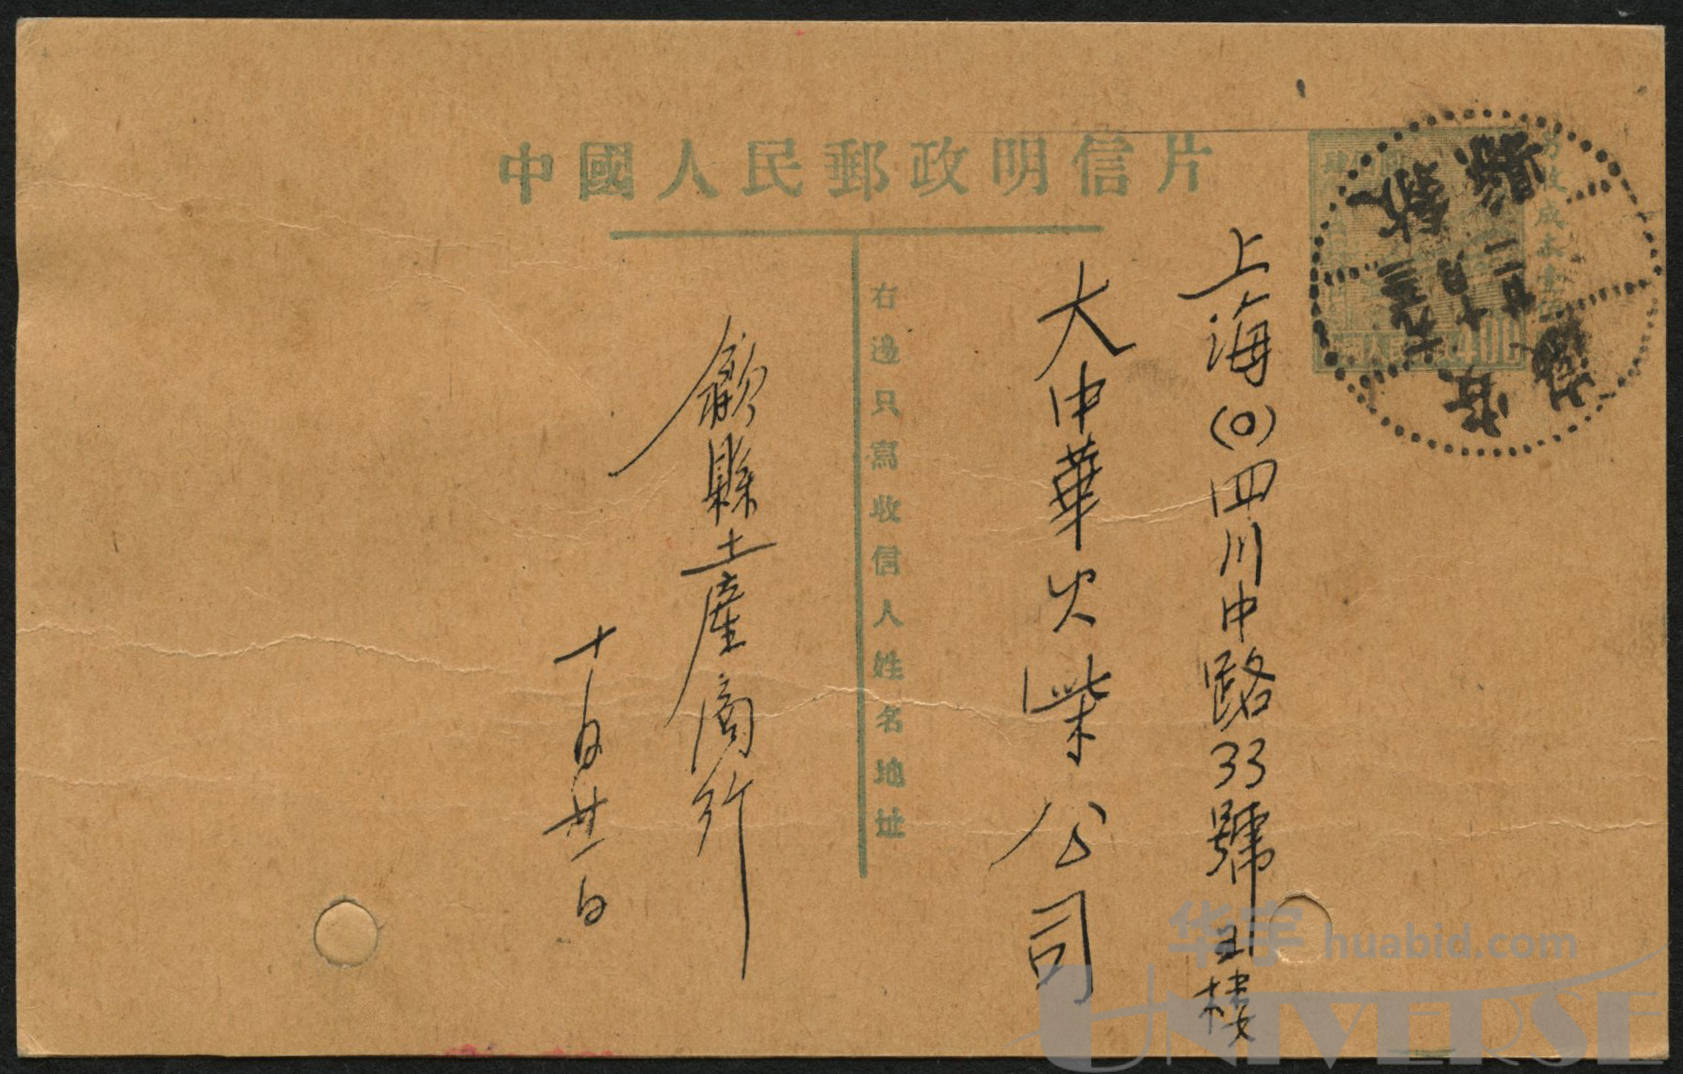 中國人民郵政明信片
上海(0)四川中路33號
大中華火柴公司
右邊只寫收信人姓名地址
歙縣土產商行
十月廿一日
400
华宇 huabid.com
UNIVERSE